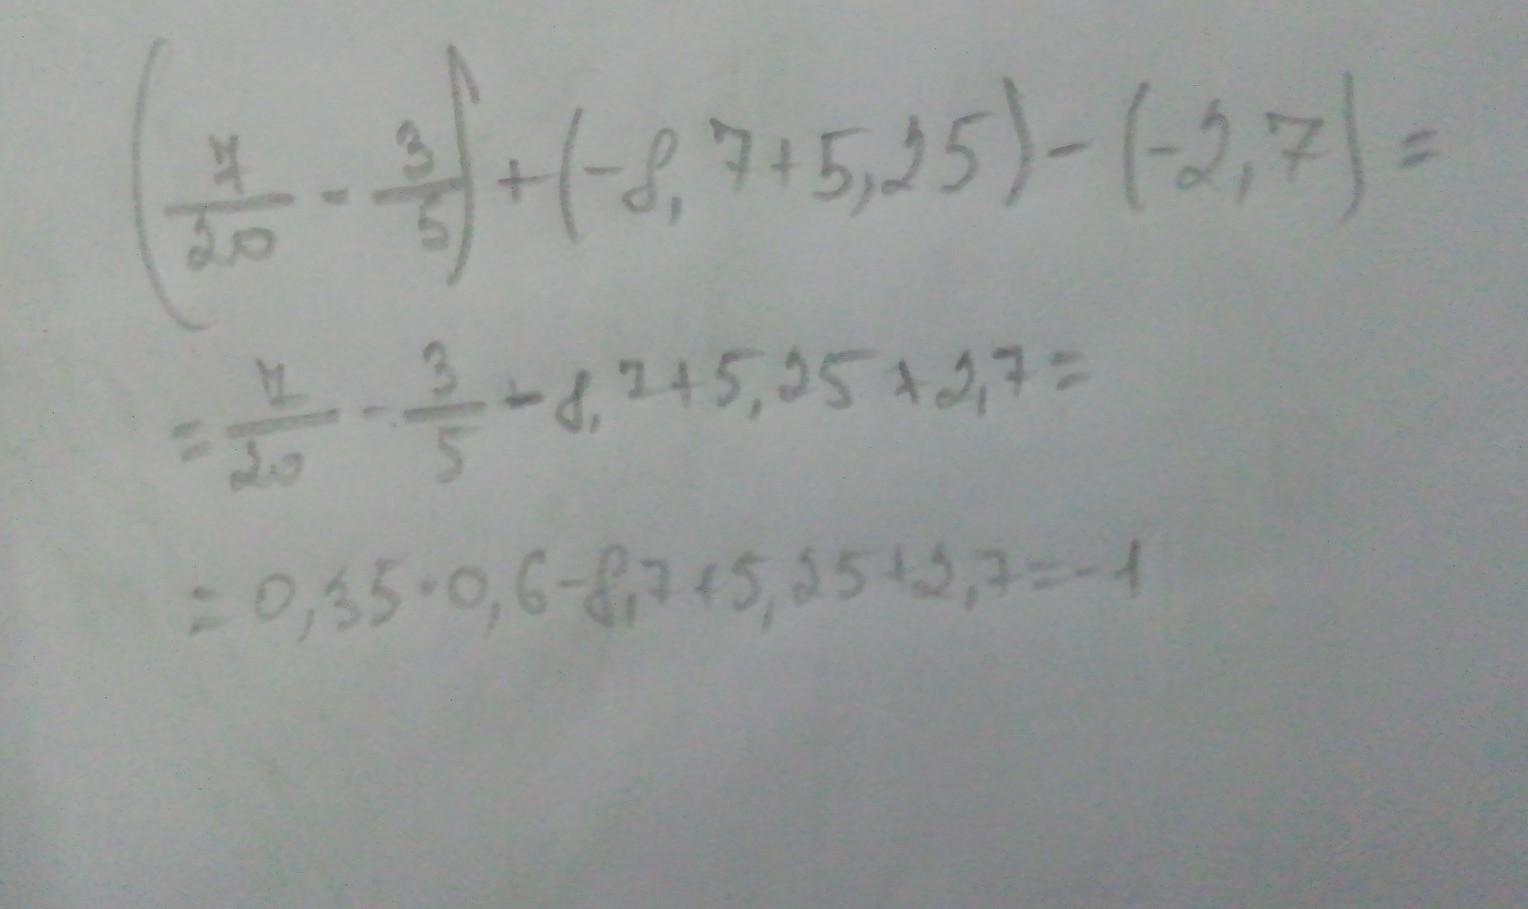 (7/20 - 3/5) + (-8,7+5,25) - (-2,7) =
= 7/20 - 3/5 - 8,7+5,25+2,7=
= 0,35-0,6-8,7+5,25+2,7=-1